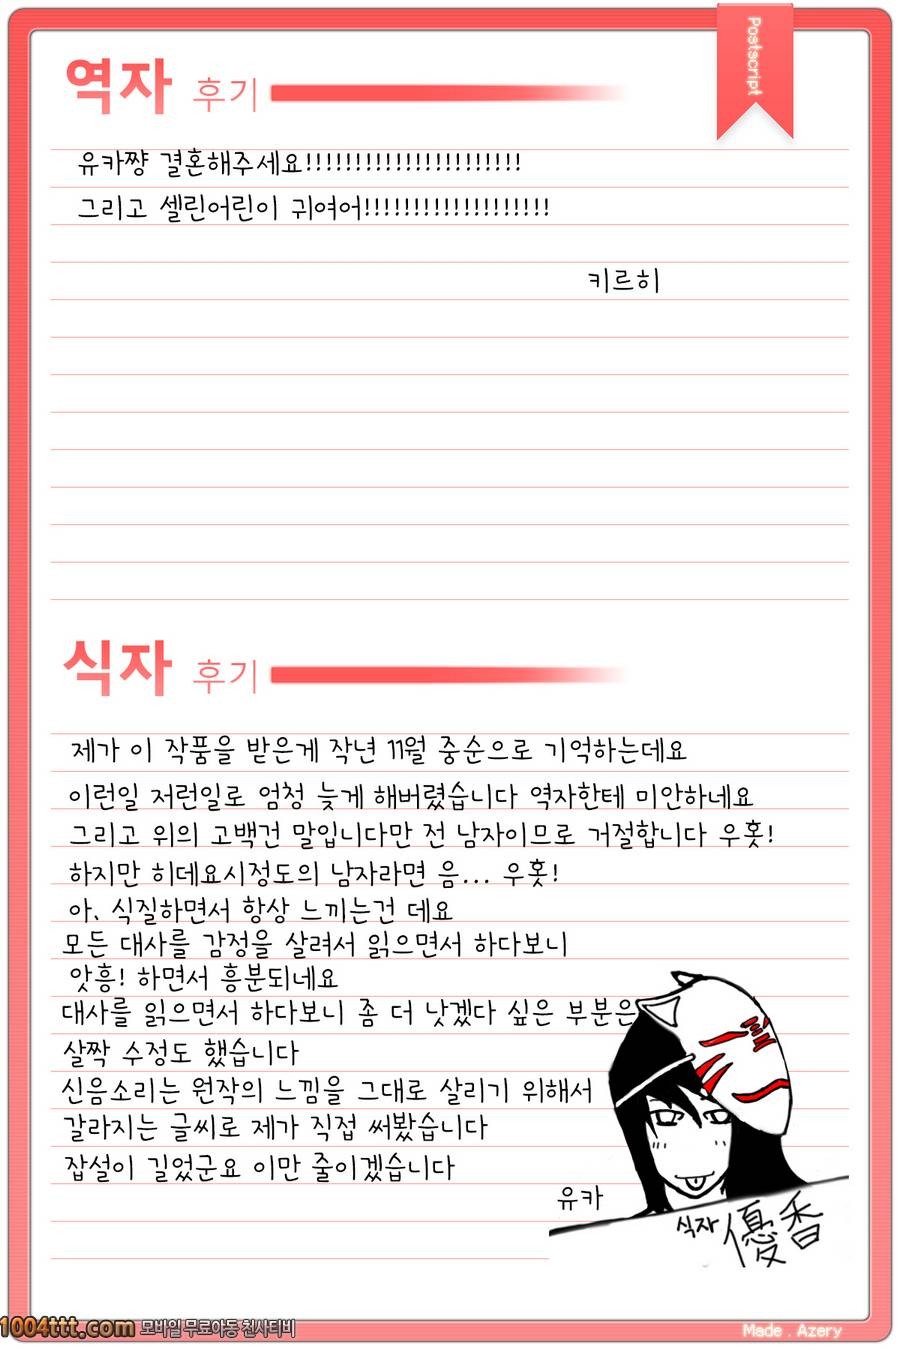 Postscript
역자 후기
유카쨩 결혼해주세요!!!!!!!!!!!!!!!!!!!!!!
그리고 셀린어린이 귀여어!!!!!!!!!!!!!!!!!!!
키르히
식자 후기
제가 이 작품을 받은게 작년 11월 중순으로 기억하는데요
이런일 저런일로 엄청 늦게 해버렸습니다 역자한테 미안하네요
그리고 위의 고백건 말입니다만 전 남자이므로 거절합니다 우훗!
하지만 히데요시정도의 남자라면 음... 우훗!
아. 식질하면서 항상 느끼는건 데요
모든 대사를 감정을 살려서 읽으면서 하다보니
앗흥! 하면서 흥분되네요
대사를 읽으면서 하다보니 좀 더 낫겠다 싶은 부분은
살짝 수정도 했습니다
신음소리는 원작의 느낌을 그대로 살리기 위해서
갈라지는 글씨로 제가 직접 써봤습니다
잡설이 길었군요 이만 줄이겠습니다
유카
식자 優香
1004ttt.com 모바일 무료야동 천사티비
Made . Azery